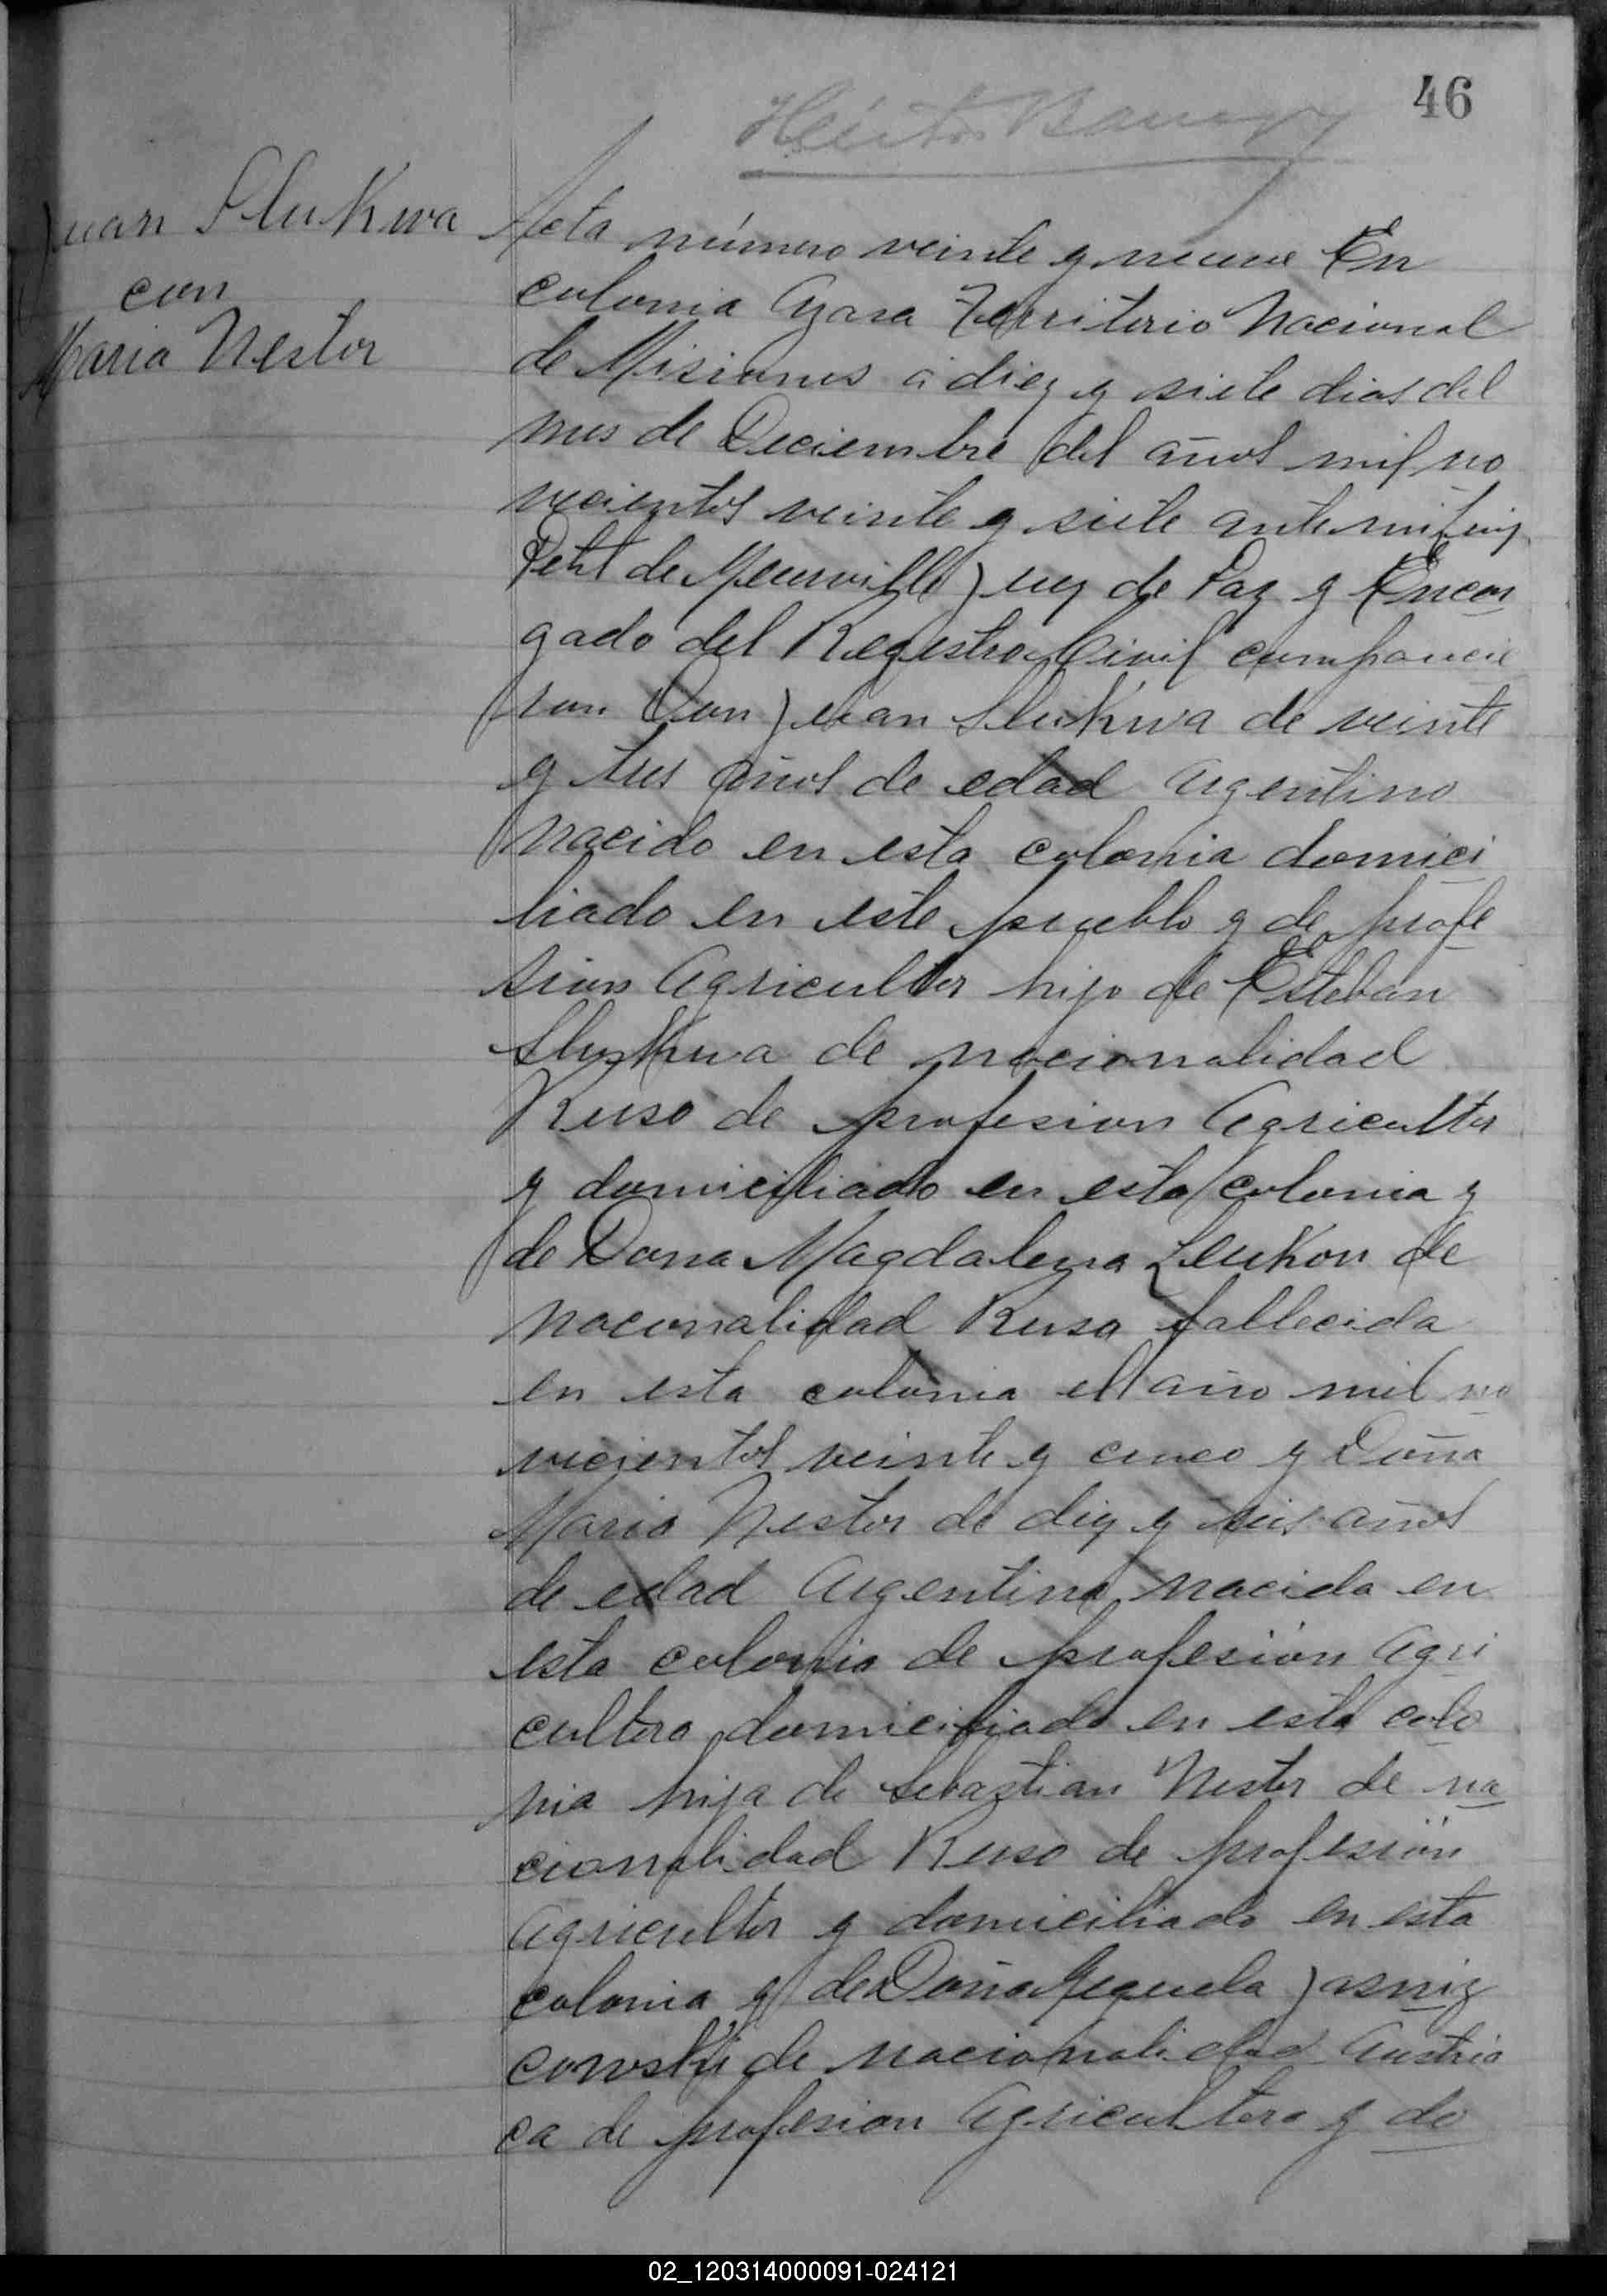 46
Juan Slukwa
con
Maria Nestor
Acta número veinte y nueve En
colonia Azara Territorio Nacional
de Misiones á diez y siete dias del
mes de Deciembre del años mil no
vecientos veinte y siete ante mi
Petit de Meurville Juez de Paz y Encar
gado del Registro Civil comparecie
ron Don Juan Slukwa de veinte
y tres años de edad Argentino
nacido en esta colonia domici
liado en este pueblo y de profe
sion Agricultor hijo de Esteban
Slukwa de nacionalidad
Ruso de profesion Agricultor
y domiciliado en esta colonia y
de Dona Magdalena Leukon de
nacionalidad Rusa fallecida
en esta colonia el año mil no
vecientos veinte y cinco y Doña
Maria Nestor de diez y seis años
de edad Argentina nacida en
esta colonia de profesión Agri
cultora domiciliada en esta colo
nia hija de Sebastian Nestor de na
cionalidad Ruso de profesión
Agricultor y domiciliado en esta
colonia y de Doña Jasniz
cowski de nacionalidad Austria
ca de profesion Agricultora y do
02_120314000091-024121